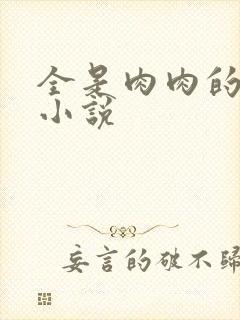 全是肉肉的
小说
妄言的破不归